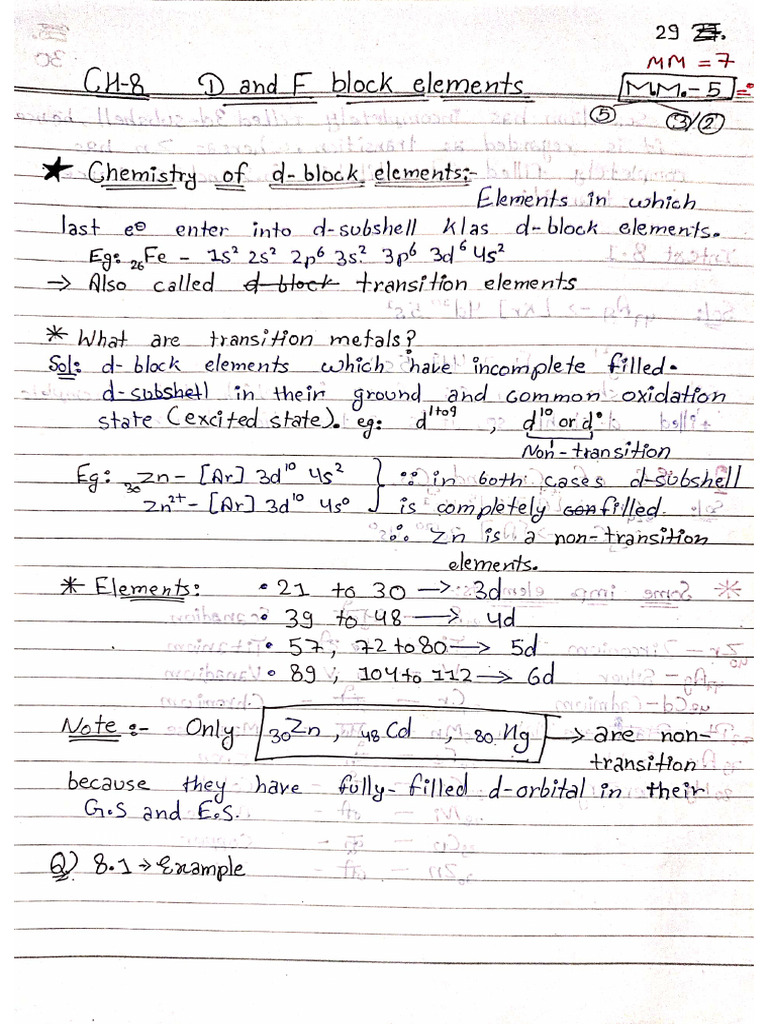 29
MM = 7
CH-8 D and F block elements M.M.-5 =
5 3/2
★ Chemistry of d-block elements:-
Elements in which
last e⊖ enter into d-subshell k/as d-block elements.
Eg: ₂₆Fe - 1s² 2s² 2p⁶ 3s² 3p⁶ 3d⁶ 4s²
→ Also called d-block transition elements
* What are transition metals?
Sol: d-block elements which have incomplete filled.
d-subshell in their ground and common oxidation
state (excited state). eg: d¹ᵗᵒ⁹ , d¹⁰ or d⁰
Non-transition
Eg: ₃₀Zn - [Ar] 3d¹⁰ 4s² } ∵ in both cases d-subshell
Zn²⁺ - [Ar] 3d¹⁰ 4s⁰ is completely filled.
∴ Zn is a non-transition
elements.
* Elements: • 21 to 30 → 3d
• 39 to 48 → 4d
• 57, 72 to 80 → 5d
• 89, 104 to 112 → 6d
Note :- Only ₃₀Zn , ₄₈Cd , ₈₀Hg → are non-
transition
because they have fully-filled d-orbital in their
G.S and E.S.
Q) 8.1 → Example